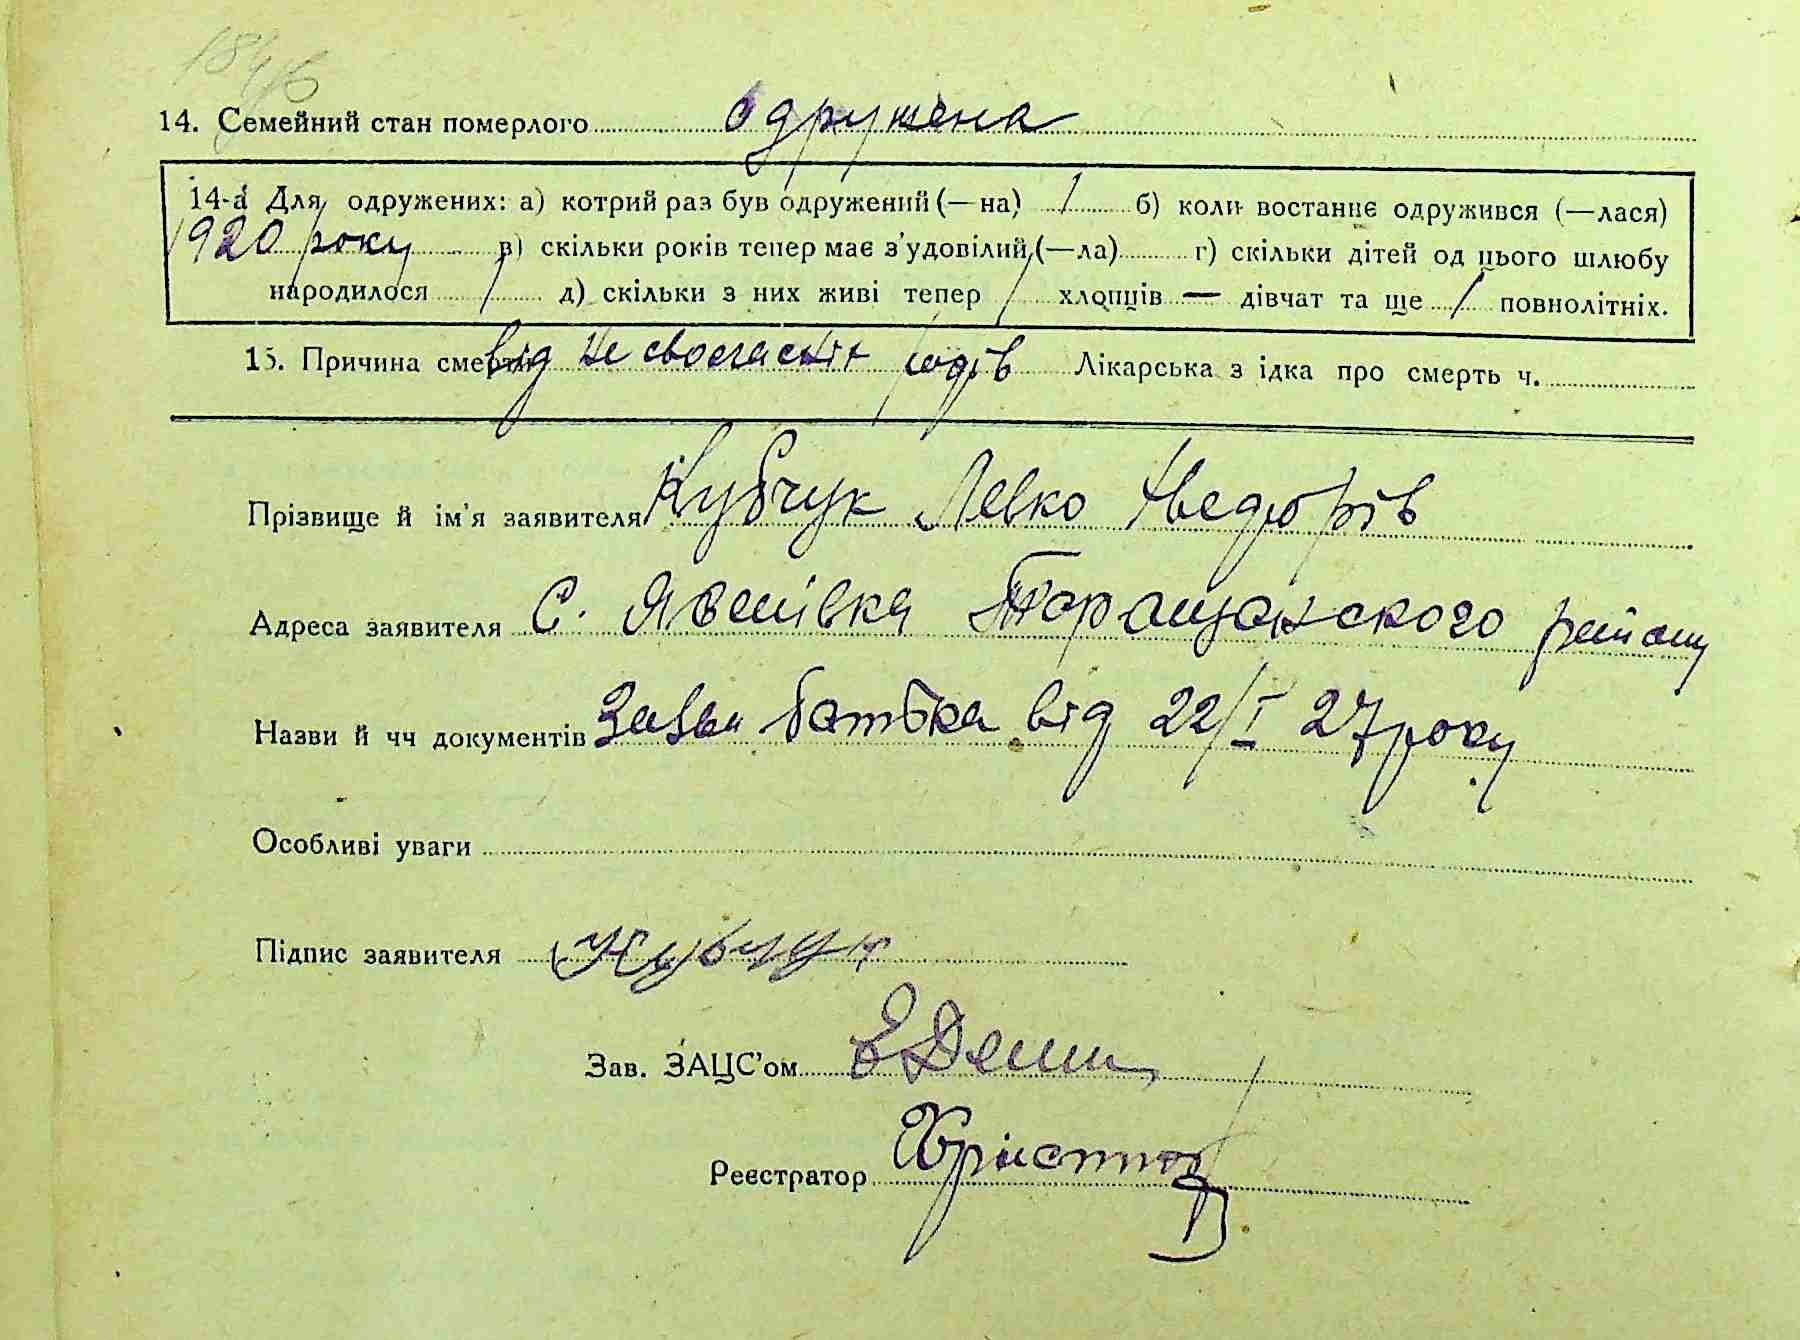 14. Семейний стан померлого одружена
14-а Для одружених: а) котрий раз був одружений (—на) 1 б) коли востаннє одружився (—лася)
1920 року в) скільки років тепер має з'удовілий (—ла) г) скільки дітей од цього шлюбу
народилося 1 д) скільки з них живі тепер 1 хлопців — дівчат та ще 1 повнолітніх.
15. Причина смерти від не своєчасних родів Лікарська з ідка про смерть ч.
Прізвище й ім'я заявителя Кубчук Левко Хведорів
Адреса заявителя С. Лукʼянівка Таращанского району
Назви й чч документів Заява батька від 22/I 27 року
Особливі уваги
Підпис заявителя Кубчук
Зав. ЗАЦС'ом
Реєстратор